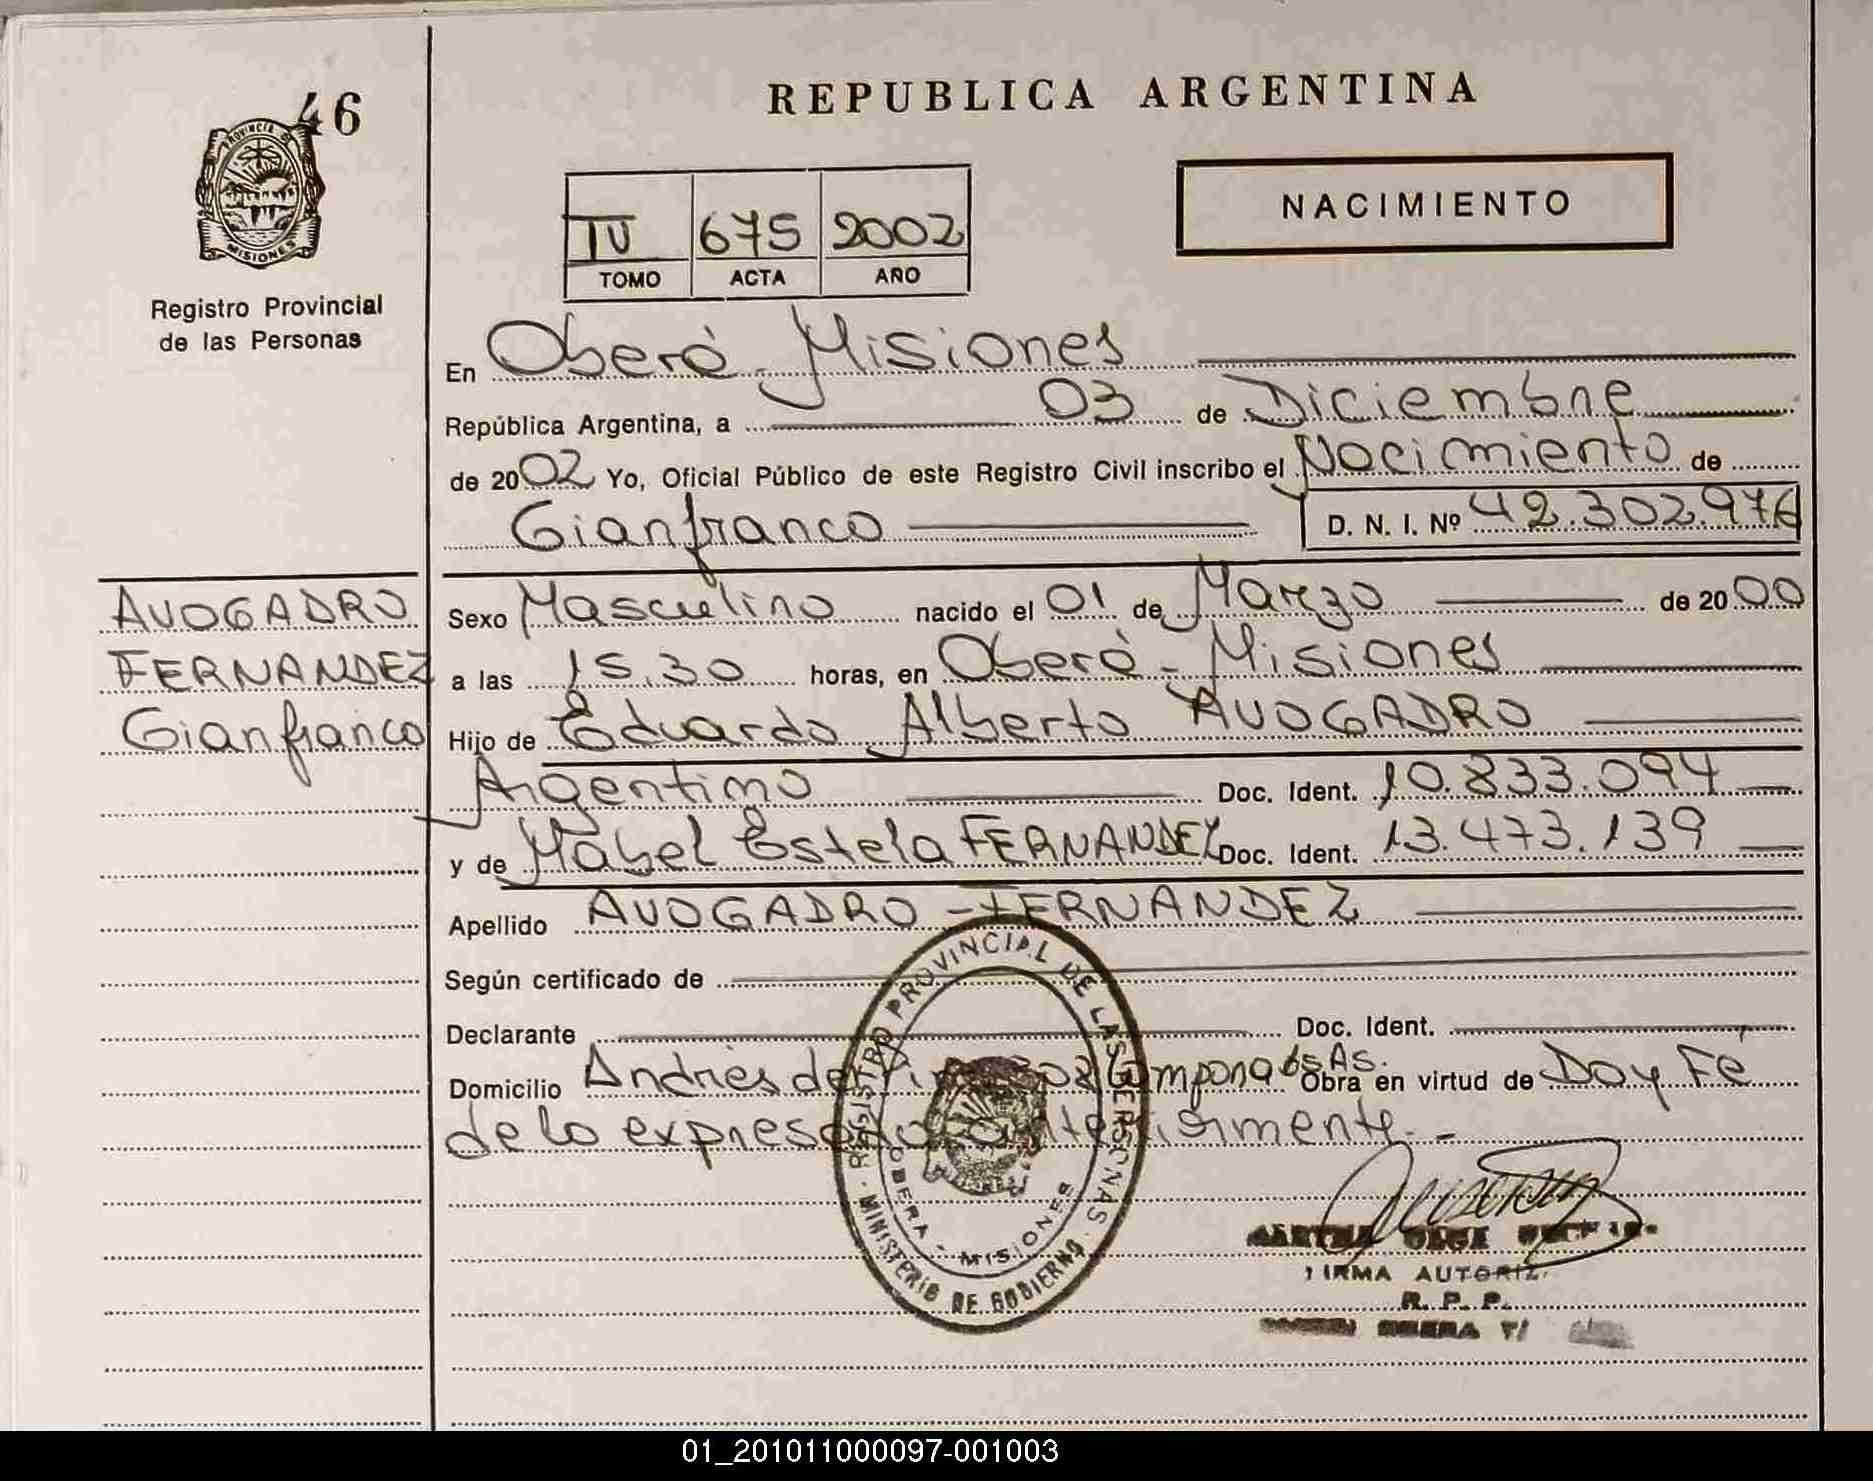 46
PROVINCIA DE
MISIONES
Registro Provincial
de las Personas
REPUBLICA ARGENTINA
NACIMIENTO
IV 675 2002
TOMO ACTA AÑO
En Oberá - Misiones
República Argentina, a 03 de Diciembre
de 2002 Yo, Oficial Público de este Registro Civil inscribo el Nacimiento de
Gianfranco D. N. I. Nº 42.302.976
AVOGADRO
FERNANDEZ
Gianfranco
Sexo Masculino nacido el 01 de Marzo de 2000
a las 15.30 horas, en Oberá - Misiones
Hijo de Eduardo Alberto AVOGADRO
Argentino Doc. Ident. 10.833.094
y de Mabel Estela FERNANDEZ Doc. Ident. 13.473.139
Apellido AVOGADRO - FERNANDEZ
Según certificado de
Declarante Doc. Ident.
Domicilio Andrés de Bs As. Obra en virtud de Doy Fé
de lo expresado anteriormente. -
REGISTRO PROVINCIAL DE LAS PERSONAS
MINISTERIO DE GOBIERNO
OBERA - MISIONES
FIRMA AUTORIZ.
R. P. P.
01_201011000097-001003